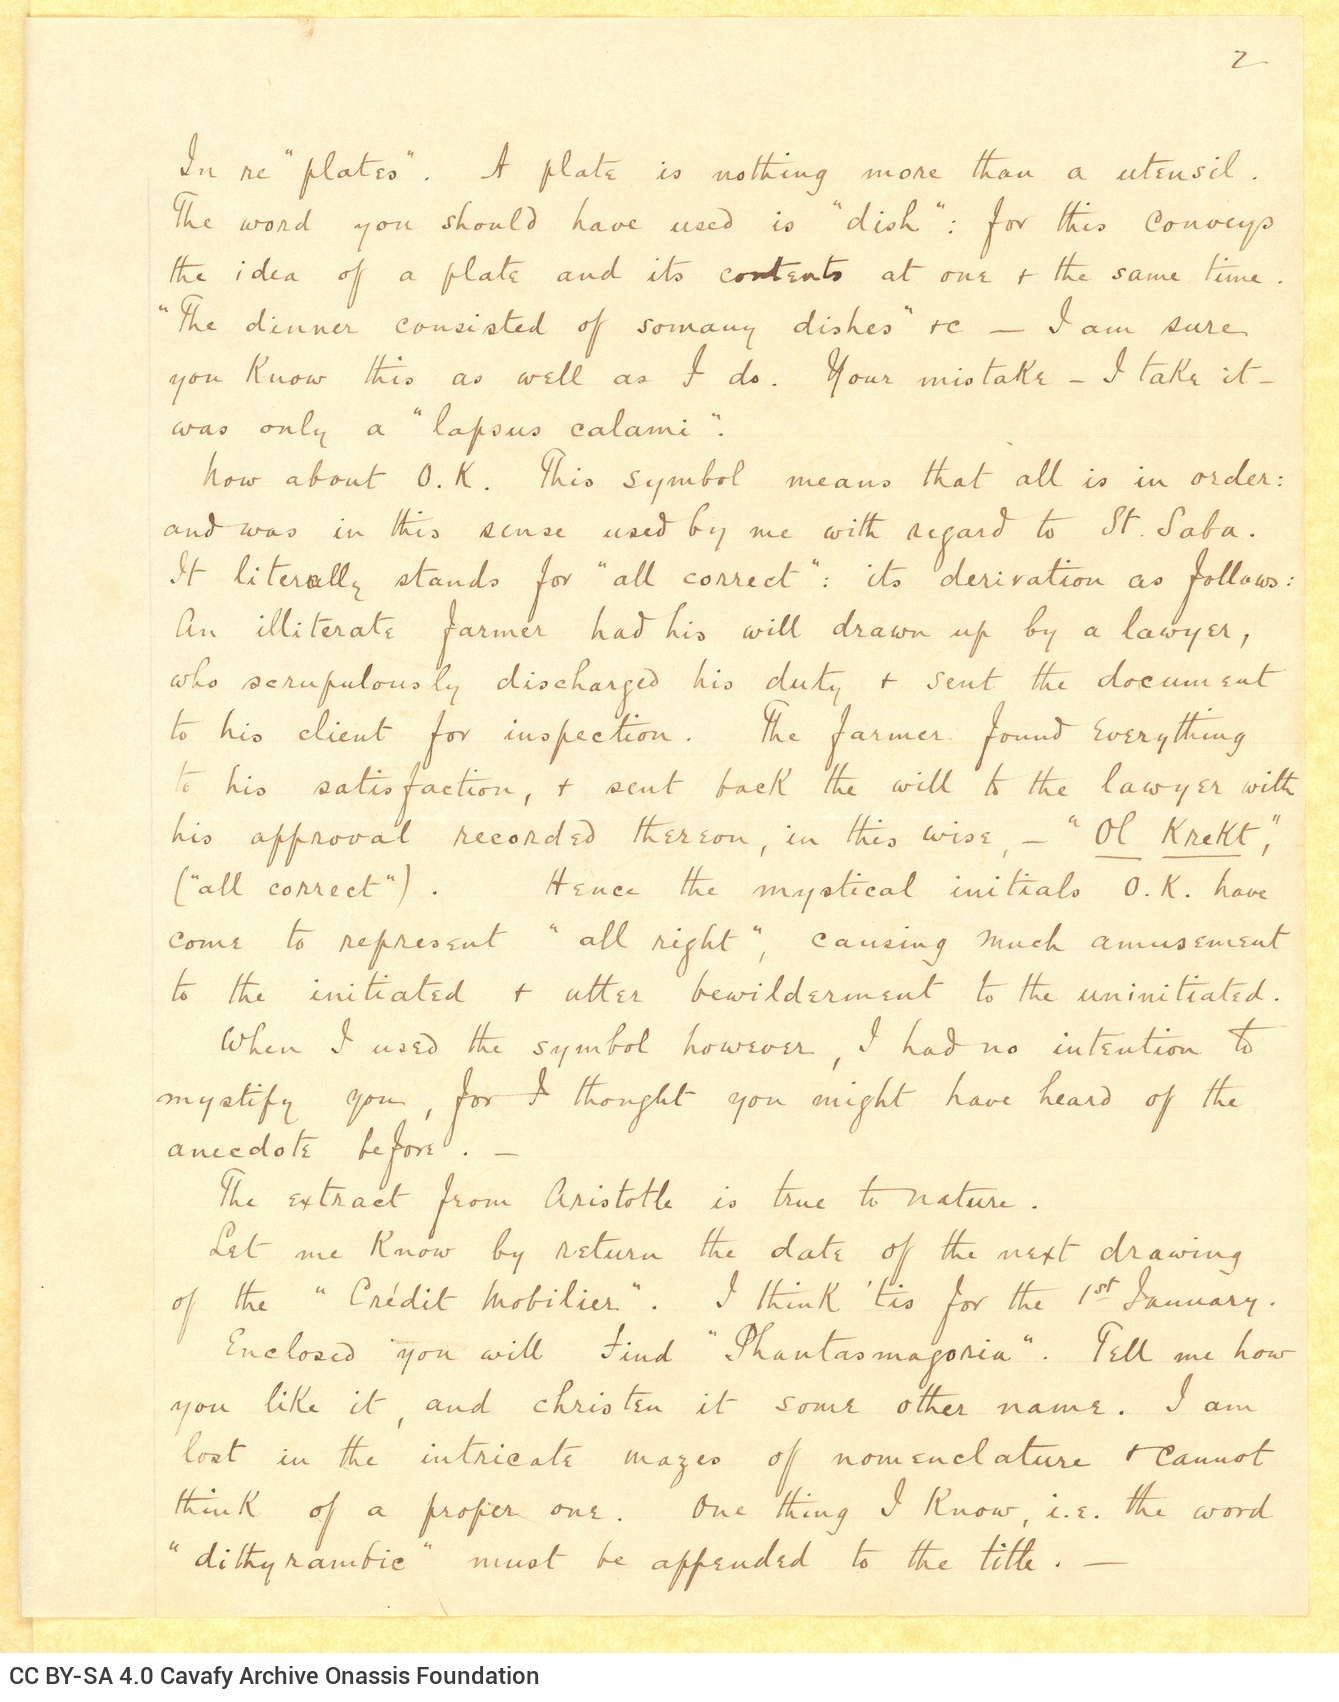 2
In re "plates". A plate is nothing more than a utensil.
The word you should have used is "dish": for this conveys
the idea of a plate and its contents at one + the same time.
"The dinner consisted of somany dishes" +c — I am sure
you know this as well as I do. Your mistake – I take it –
was only a "lapsus calami".
Now about O.K. This symbol means that all is in order:
and was in this sense used by me with regard to St. Saba.
It literally stands for "all correct": its derivation as follows:
An illiterate farmer had his will drawn up by a lawyer,
who scrupulously discharged his duty + sent the document
to his client for inspection. The farmer found everything
to his satisfaction, + sent back the will to the lawyer with
his approval recorded thereon, in this wise, – "Ol Krekt,"
("all correct"). Hence the mystical initials O.K. have
come to represent "all right", causing much amusement
to the initiated + utter bewilderment to the uninitiated.
When I used the symbol however, I had no intention to
mystify you, for I thought you might have heard of the
anecdote before. —
The extract from Aristotle is true to nature.
Let me know by return the date of the next drawing
of the "Crédit Mobilier". I think 'tis for the 1st January.
Enclosed you will find "Phantasmagoria". Tell me how
you like it, and christen it some other name. I am
lost in the intricate mazes of nomenclature + cannot
think of a proper one. One thing I know, i.e. the word
"dithyrambic" must be appended to the title. —
CC BY-SA 4.0 Cavafy Archive Onassis Foundation